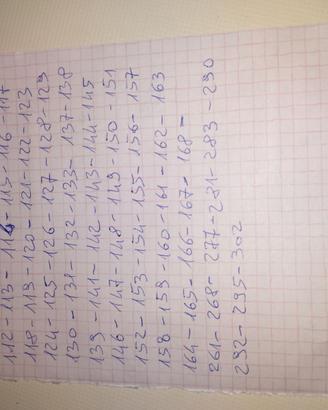 112 - 113 - 114 - 115 - 116 - 117
118 - 119 - 120 - 121 - 122 - 123
124 - 125 - 126 - 127 - 128 - 129
130 - 131 - 132 - 133 - 137 - 138
139 - 141 - 142 - 143 - 144 - 145
146 - 147 - 148 - 149 - 150 - 151
152 - 153 - 154 - 155 - 156 - 157
158 - 159 - 160 - 161 - 162 - 163
164 - 165 - 166 - 167 - 168 -
261 - 268 - 277 - 281 - 283 - 290
292 - 295 - 302